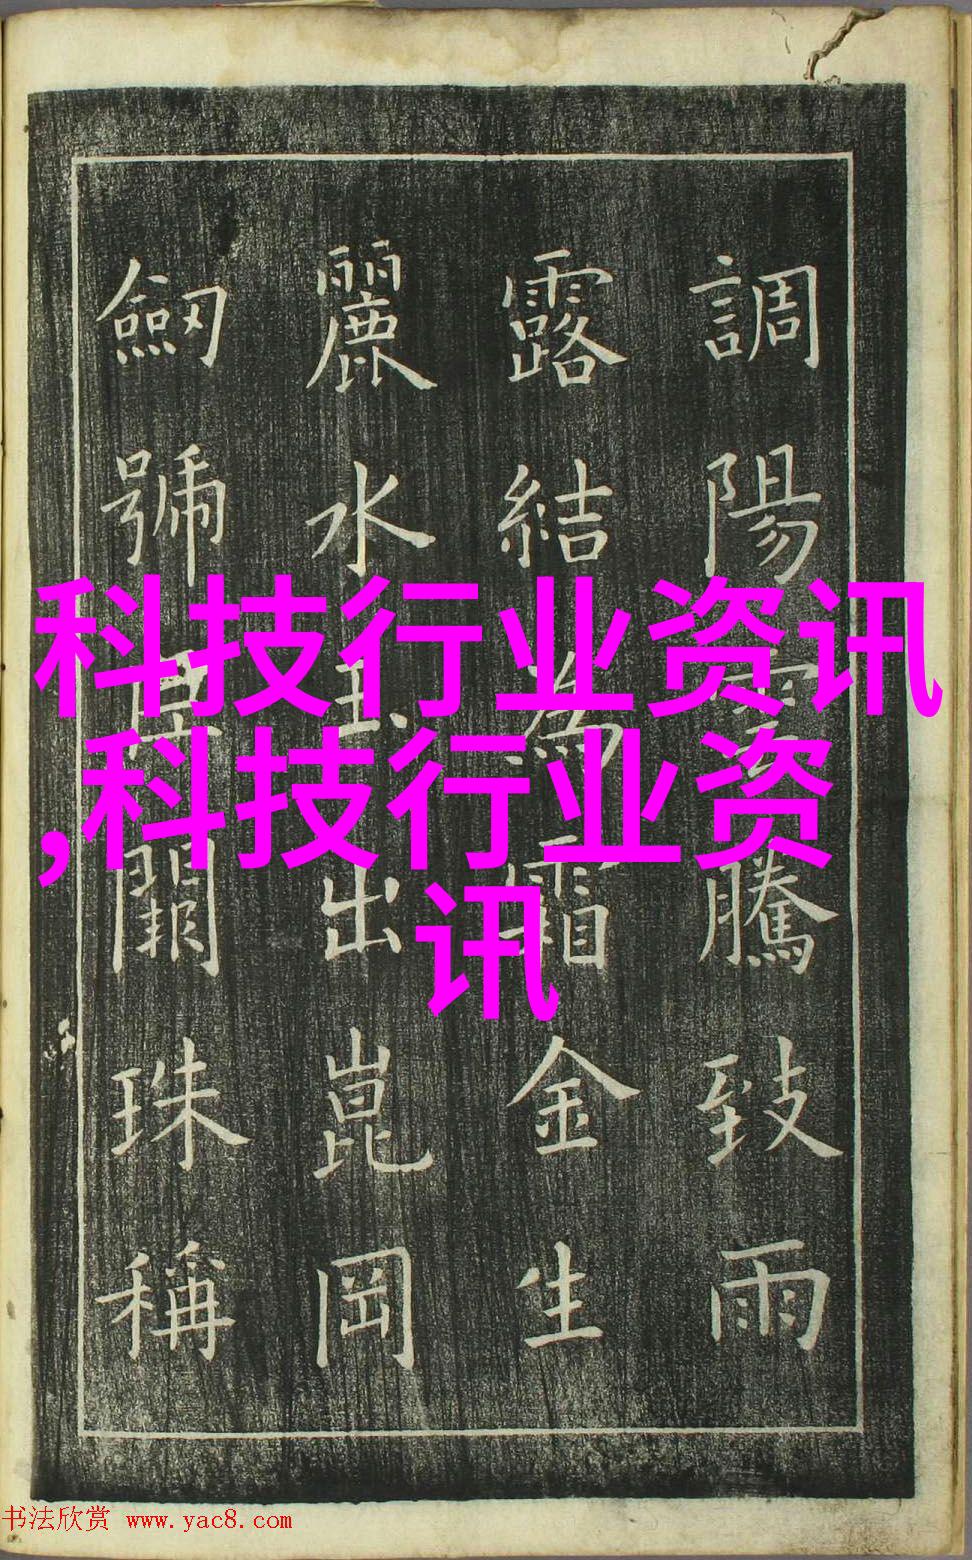 調陽雲騰致雨
露結為霜金生
麗水玉出崑岡
劒號巨闕珠稱
科技行业资讯
,科技行业资
讯
书法欣赏 www.yac8.com